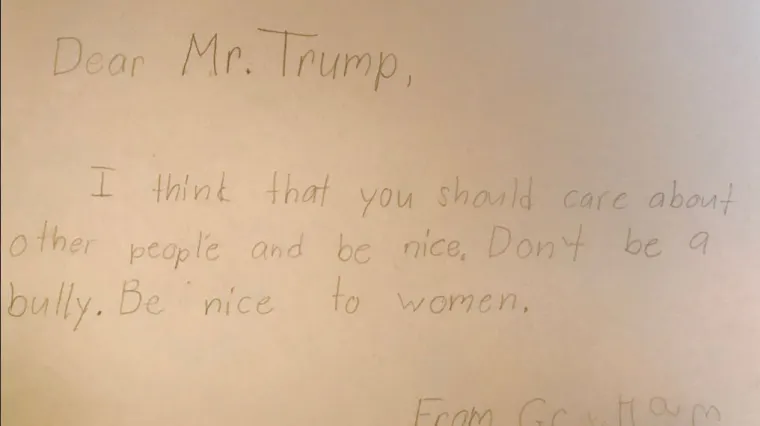 Dear Mr. Trump,
I think that you should care about
other people and be nice. Don't be a
bully. Be nice to women.
From